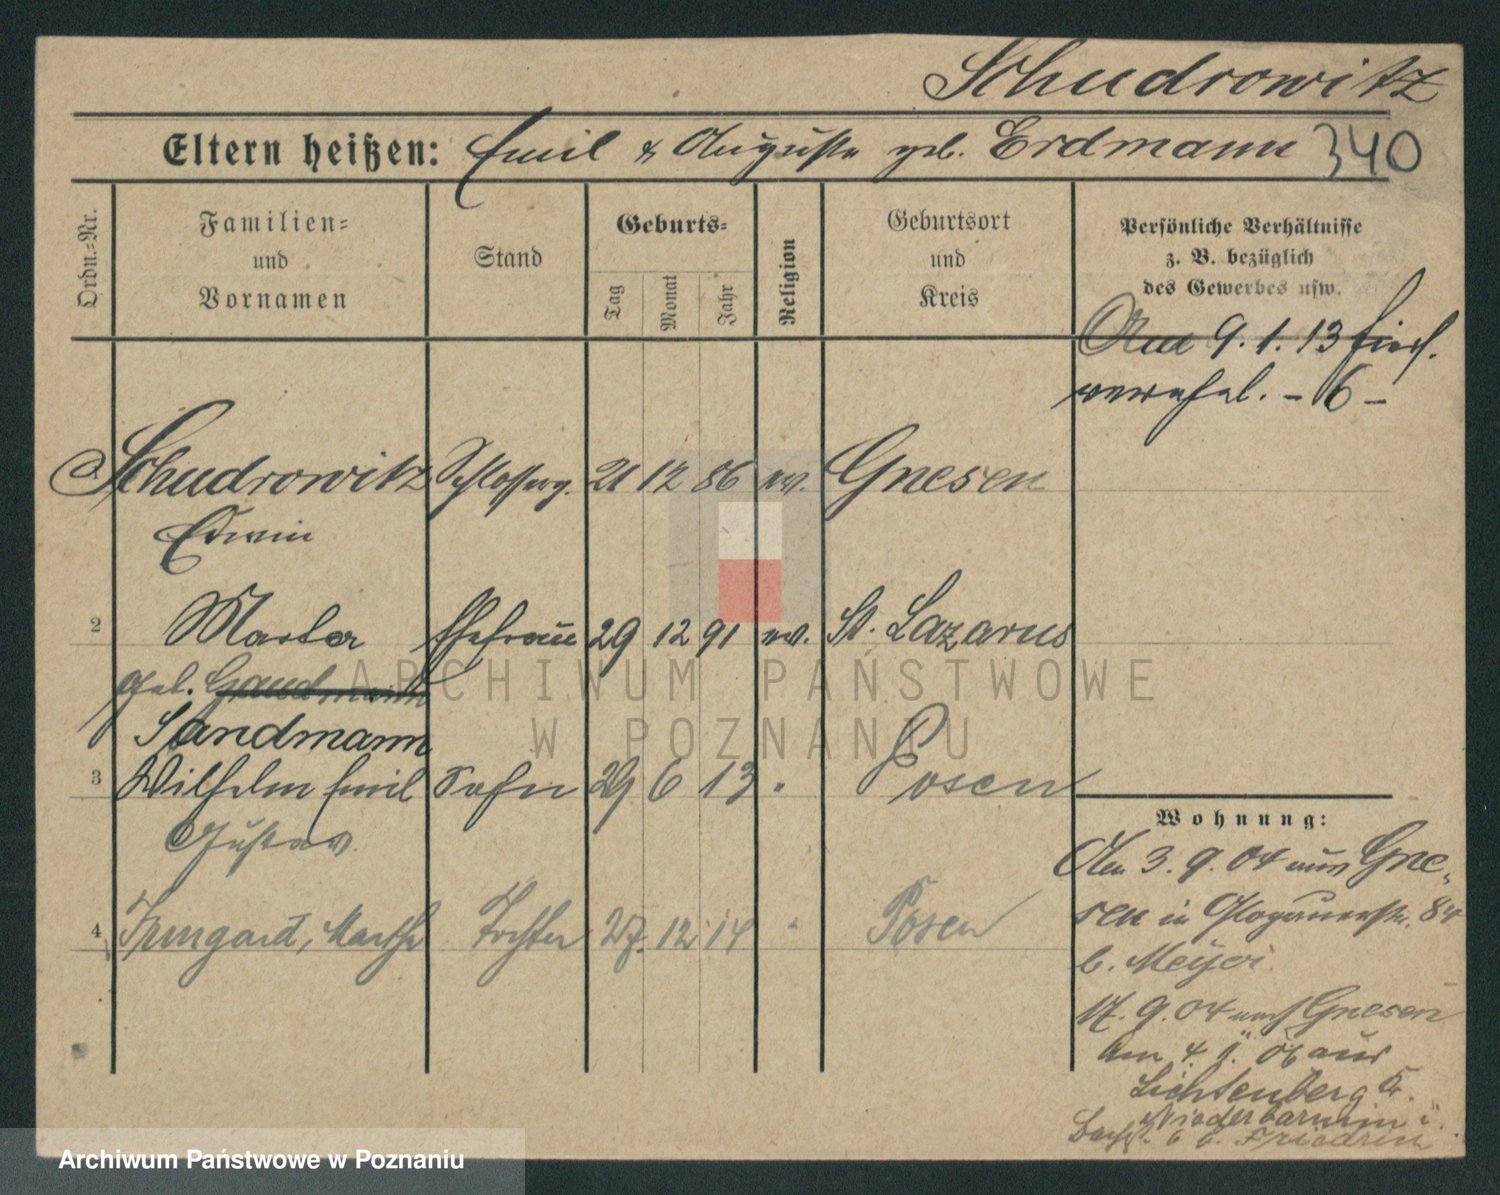 Schudrowitz
Eltern heißen: Emil & Auguste geb. Erdmann 340
Ordn.=Nr.
Familien=
und
Vornamen
Stand
Geburts=
Tag
Monat
Jahr
Religion
Geburtsort
und
Kreis
Persönliche Verhältnisse
z. B. bezüglich
des Gewerbes usw.
Am 9. 1. 13 hier
verehel. - 6 -
Schudrowitz Schlosserg. 21 12 86 ev. Gnesen
Edwin
2 Martha Ehefrau 29 12 91 ev. St. Lazarus
geb. Sandmann
3 Wilhelm Emil Sohn 29 6 13 " Posen
Gustav
4 Irmgard, Martha Tochter 27. 12 14 " Posen
Wohnung:
Am 3. 9. 04 aus Gne-
sen in Glogauerstr. 84
b. Meyer
17. 9. 04 nach Gnesen
Am 4. 1. 06 aus
Lichtenberg Kr.
Niederbarnim i.
ARCHIWUM PAŃSTWOWE
W POZNANIU
Archiwum Państwowe w Poznaniu